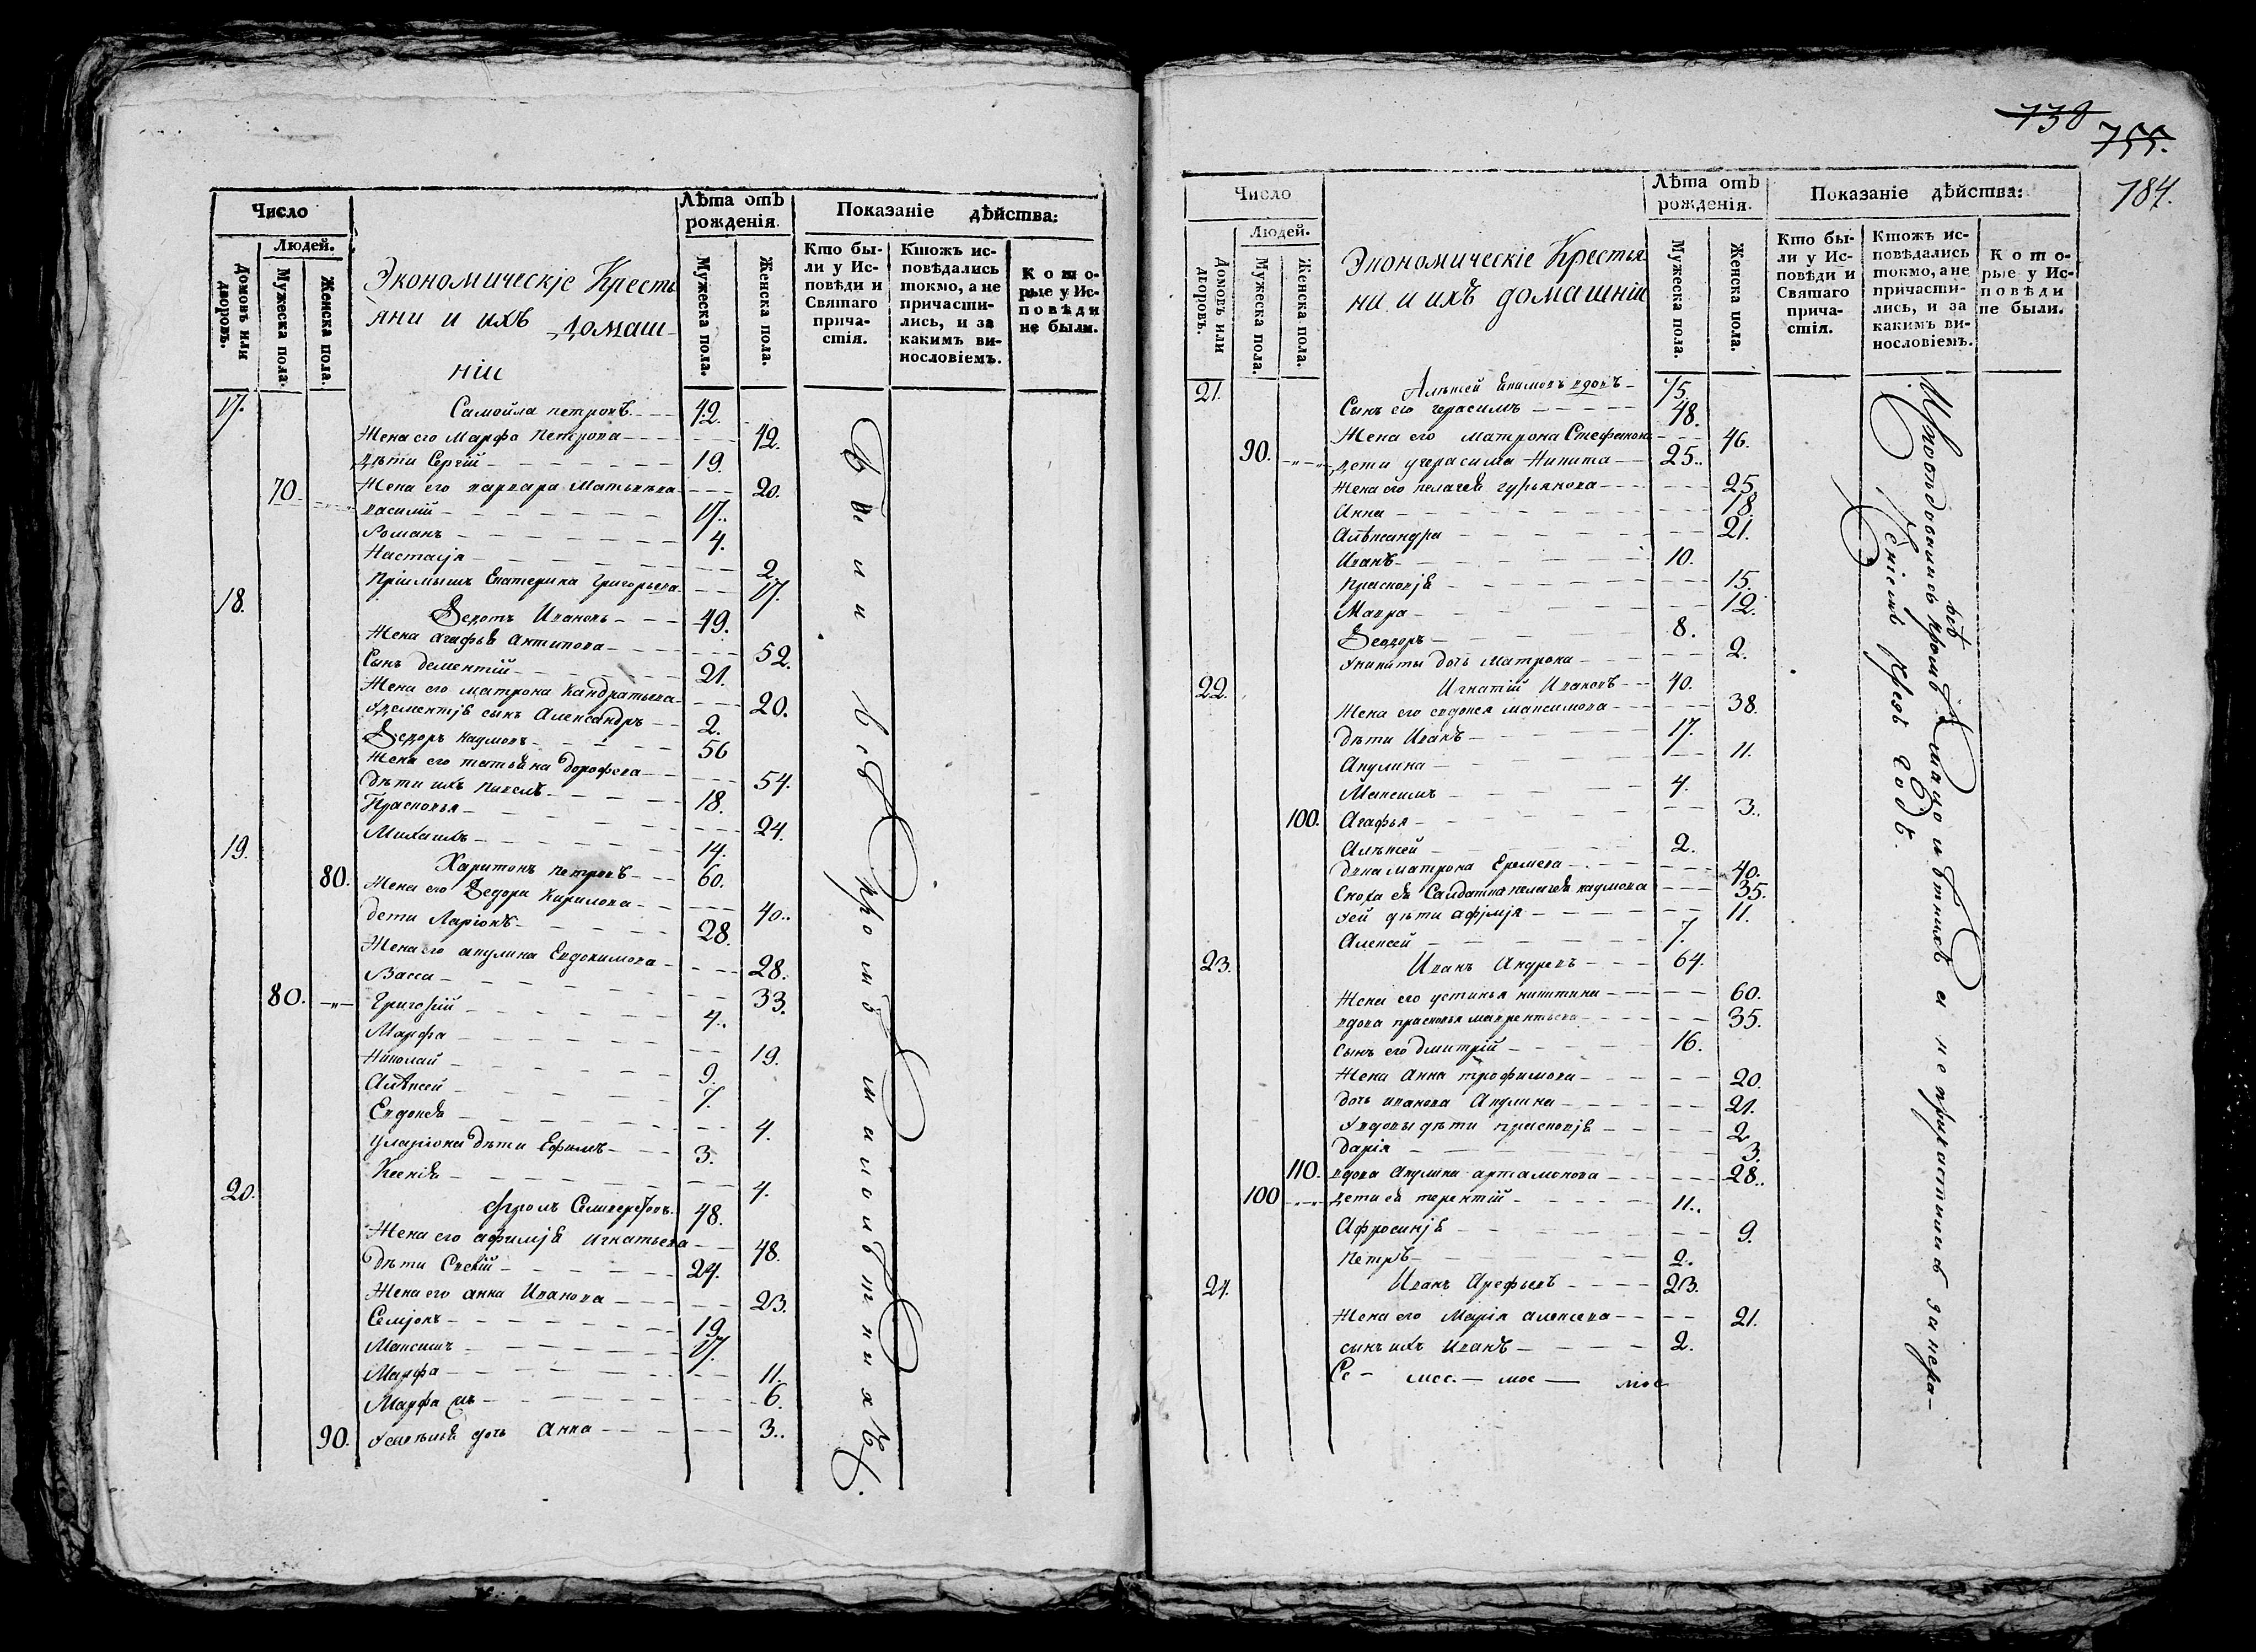 Число
Людей.
Домовъ или дворовъ.
Мужеска пола.
Женска пола.
Экономическіе Кресть
яни и ихъ домаш
ніи
Лѣта отъ рожденія.
Мужеска пола.
Женска пола.
Показаніе дѣйства:
Кто бы-
ли у Ис-
повѣди и
Святаго
прича-
стія.
Ктожъ ис-
повѣдались
токмо, а не
причасти-
лись, и за
какимъ ви-
нословіемъ.
Кото-
рые у Ис-
повѣди
не были.
17. Самойла петровъ 42.
Жена его Марфа Петрова 42.
дѣти Сергій 19.
70. Жена его варвара Матвѣева 20.
василій 17.
Романъ 4.
Настасія 2
Пріимышъ Екатерина Григорьева 17.
18. Ѳедотъ Ивановъ 49.
Жена агафья Антипова 52.
Сынъ дементій 21.
Жена его матрона Кандратьева 20.
У дементія сынъ Александръ 2.
Ѳедоръ наумовъ 56
Жена его татьяна дорофеева 54.
дѣти ихъ павелъ 18.
Прасковья 24.
Михаилъ 14.
19. Харитонъ петровъ 60.
80. Жена его Ѳедора Кирилова 40.
дети Ларіонъ 28.
Жена его акулина Евдокимова 28.
Васса 33.
80. Григорій 4.
Марфа 19.
Николай 9.
Алексей 7.
Евдокея 4.
У ларіона дѣти Ефимъ 3.
Ксенія 4.
20. 48.
Жена его афимія игнатьева 48.
дѣти 24.
Жена его анна Иванова 23.
Семіонъ 19
Максимъ 17.
Марфа 11.
Марфа 6.
90. дочь Анна 3.
Всѣ были кромѣ малолѣтнихъ
738
755.
184.
Число
Людей.
Домовъ или дворовъ.
Мужеска пола.
Женска пола.
Экономическіе Кресть
яни и ихъ домашніи
Лѣта отъ рожденія.
Мужеска пола.
Женска пола.
Показаніе дѣйства:
Кто бы-
ли у Ис-
повѣди и
Святаго
прича-
стія.
Ктожъ ис-
повѣдались
токмо, а не
причасти-
лись, и за
какимъ ви-
нословіемъ.
Кото-
рые у Ис-
повѣди
не были.
21. Алѣксей екимовъ вдовъ 75.
Сынъ его герасимъ 48.
Жена его матрона Стефанова 46.
90. дети у герасима Никита 25.
Жена его пелагея гурьянова 25
Анна 18.
Алѣксандра 21.
Иванъ 10.
Прасковія 15.
Мавра 12.
Ѳеодоръ 8.
У никиты дочь Матрона 2.
22. Игнатій Ивановъ 40.
Жена его евдокея максимова 38.
дѣти Иванъ 17.
Акулина 11.
Максимъ 4.
100. Агафья 3.
Алѣксей 2.
вдова матрона Еремеева 40.
Сноха ея Салдатка пелагея наумова 35.
У ней дѣти афимія 11.
Алексей 7.
23. Иванъ Андреевъ 64.
Жена его устинья никитина 60.
вдова прасковья лаврентьева 35.
сынъ его дмитрій 16.
Жена Анна трофимова 20.
дочь иванова Акулина 21.
У вдовы дѣти прасковія 2
Дарія 3.
110. вдова Акулина артамонова 28.
100 дети ея терентій 11.
Афросинія 9.
Петръ 2.
24. Иванъ Арефьевъ 23.
Жена его Марія алексеева 21.
сынъ ихъ иванъ 2.
Исповѣдовались всѣ кромѣ малолѣтнихъ а не причастились